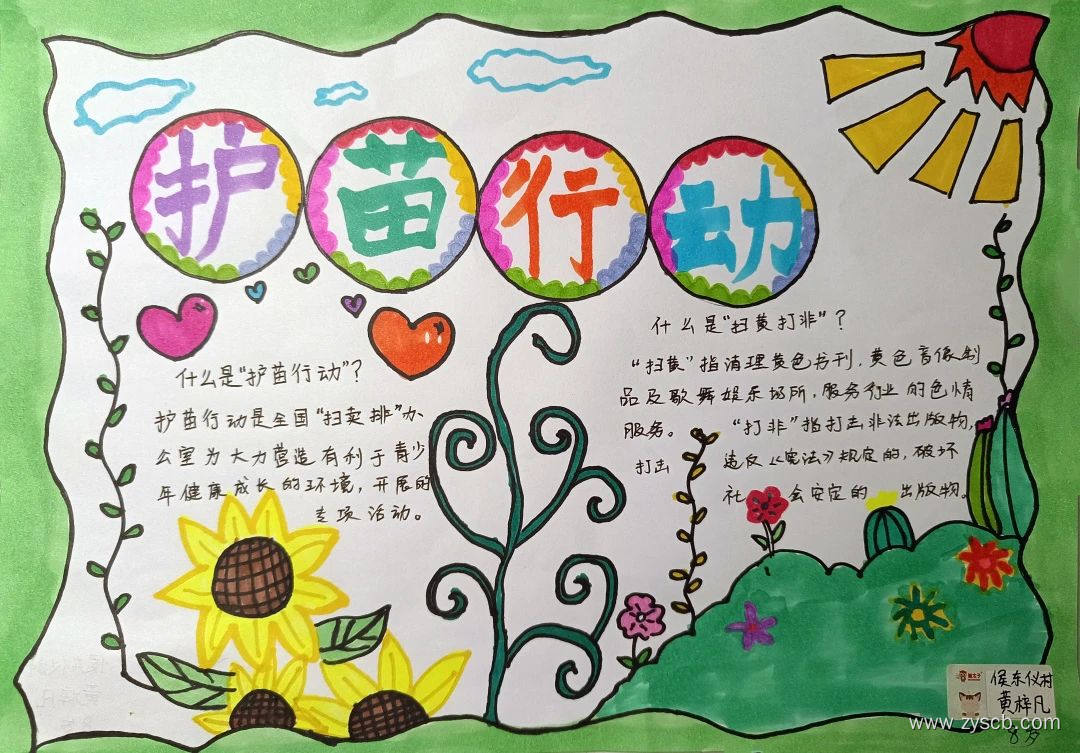 护苗行动
什么是“护苗行动”?
护苗行动是全国“扫卖排”办
公室为大力营造有利于青少
年健康成长的环境，开展的
专项活动。
什么是“扫黄打非”?
“扫黄”指清理黄色书刊，黄色音像制
品及歌舞娱乐场所，服务行业的色情
服务。 “打非”指打击非法出版物，
打击 违反《宪法》规定的，破坏
社 会安定的 出版物。
侯东仪村
黄梓凡
8岁
www.zyscb.com